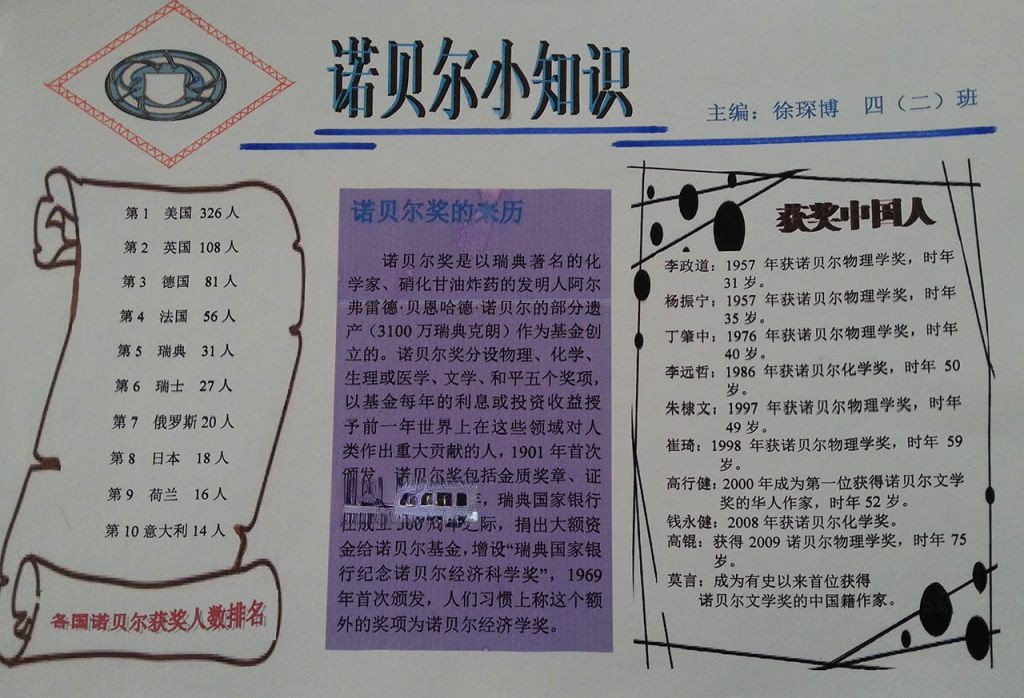 诺贝尔小知识
主编：徐琛博 四（二）班
第1 美国 326人
第2 英国 108人
第3 德国 81人
第4 法国 56人
第5 瑞典 31人
第6 瑞士 27人
第7 俄罗斯20人
第8 日本 18人
第9 荷兰 16人
第10 意大利14人
各国诺贝尔获奖人数排名
诺贝尔奖的来历
诺贝尔奖是以瑞典著名的化
学家、硝化甘油炸药的发明人阿尔
弗雷德·贝恩哈德·诺贝尔的部分遗
产（3100万瑞典克朗）作为基金创
立的。诺贝尔奖分设物理、化学、
生理或医学、文学、和平五个奖项，
以基金每年的利息或投资收益授
予前一年世界上在这些领域对人
类作出重大贡献的人，1901年首次
颁发。诺贝尔奖包括金质奖章、证
，瑞典国家银行
之际，捐出大额资
金给诺贝尔基金，增设“瑞典国家银
行纪念诺贝尔经济科学奖”，1969
年首次颁发，人们习惯上称这个额
外的奖项为诺贝尔经济学奖。
获奖中国人
李政道：1957 年获诺贝尔物理学奖，时年
31岁。
杨振宁：1957 年获诺贝尔物理学奖，时年
35岁。
丁肇中：1976 年获诺贝尔物理学奖，时年
40岁。
李远哲：1986 年获诺贝尔化学奖，时年 50
岁。
朱棣文：1997 年获诺贝尔物理学奖，时年
49岁。
崔琦：1998 年获诺贝尔物理学奖，时年 59
岁。
高行健：2000年成为第一位获得诺贝尔文学
奖的华人作家，时年52岁。
钱永健：2008年获诺贝尔化学奖。
高锟：获得 2009 诺贝尔物理学奖，时年 75
岁。
莫言：成为有史以来首位获得
诺贝尔文学奖的中国籍作家。